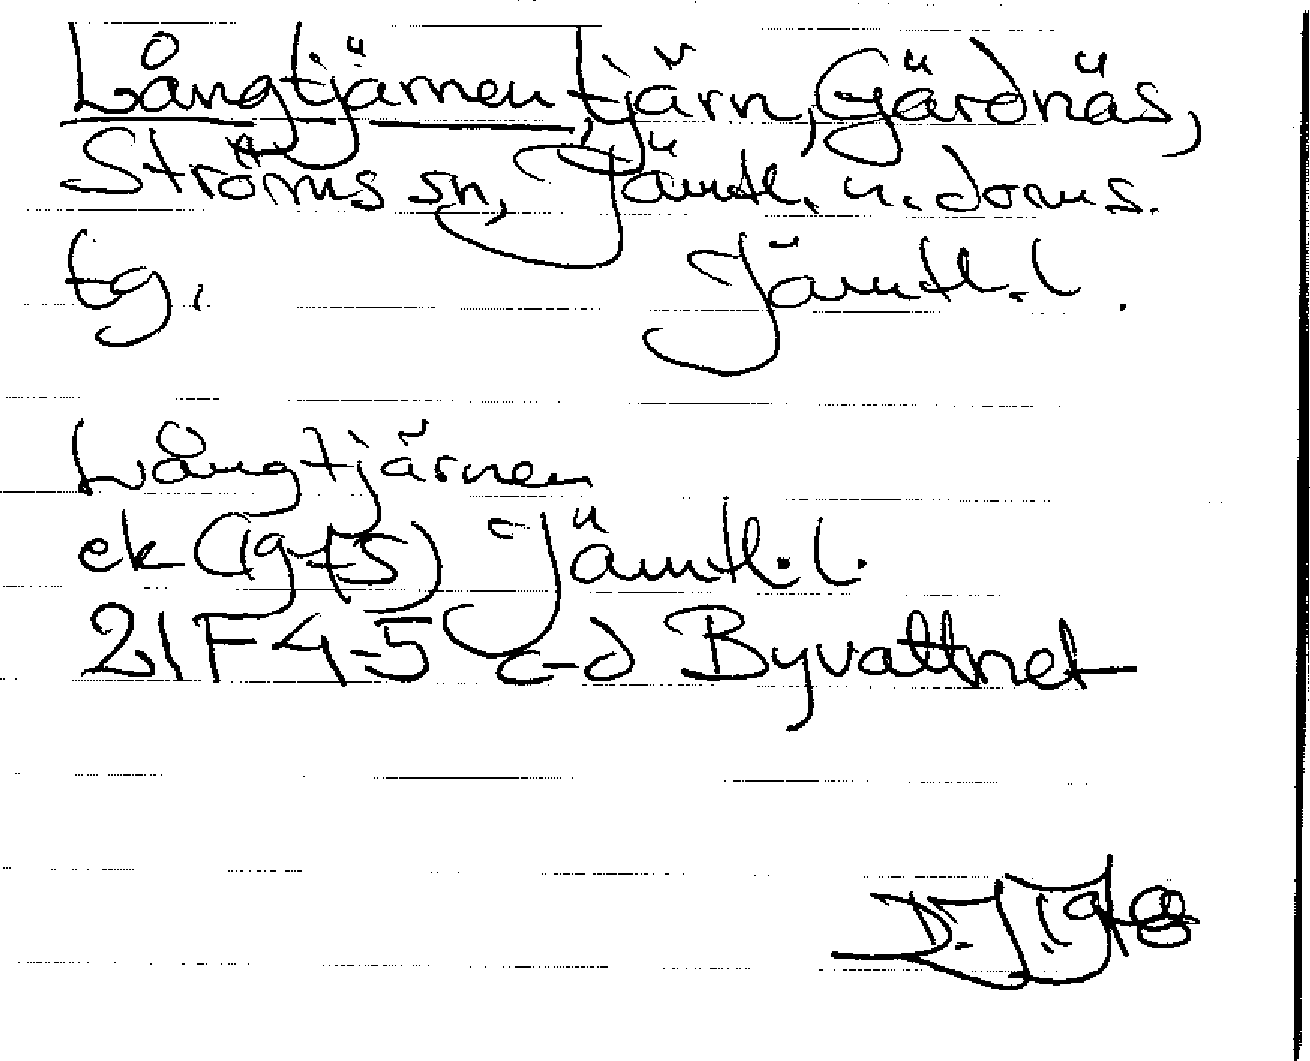 Långtjärnen tjärn, Gärdnäs,
Ströms sn, Jämtl. n. doms.
tg. Jämtl. l.
Långtjärnen
ek (1965) Jämtl. l.
21F 4-5 c-d Byvattnet